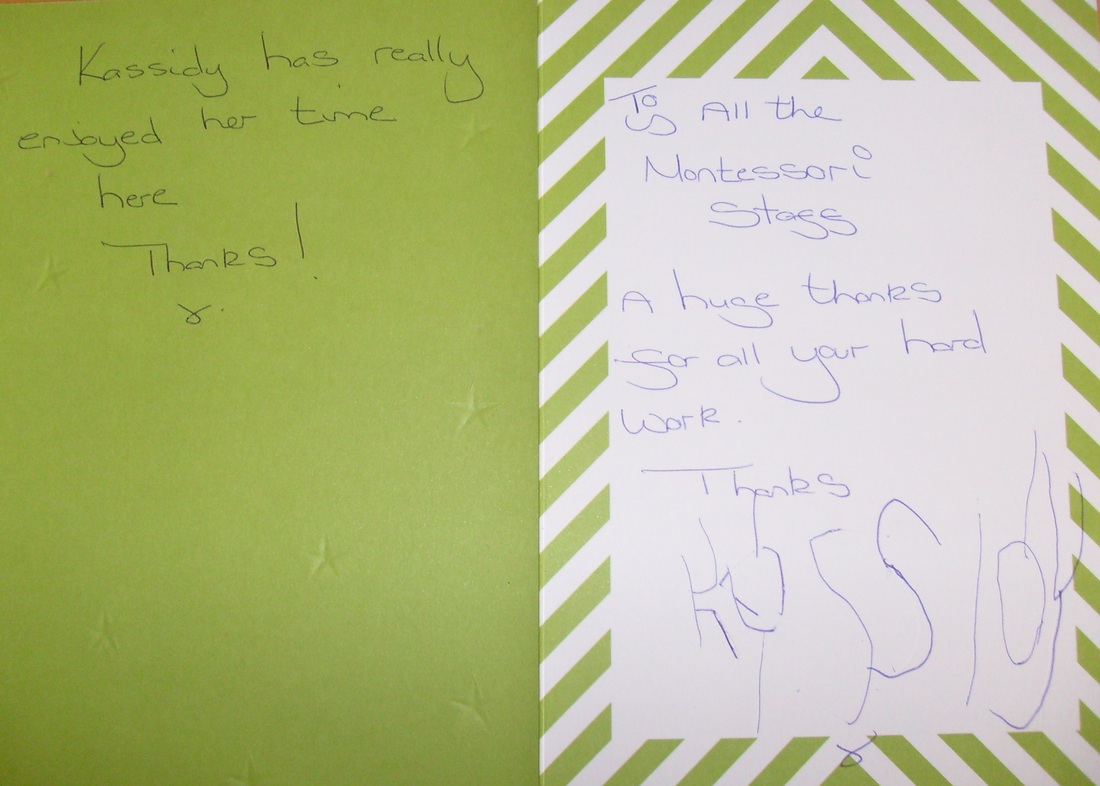 Kassidy has really
enjoyed her time
here
Thanks!
x.
To All the
Montessori
Staff
A huge thanks
for all your hard
work.
Thanks
Kassidy
x